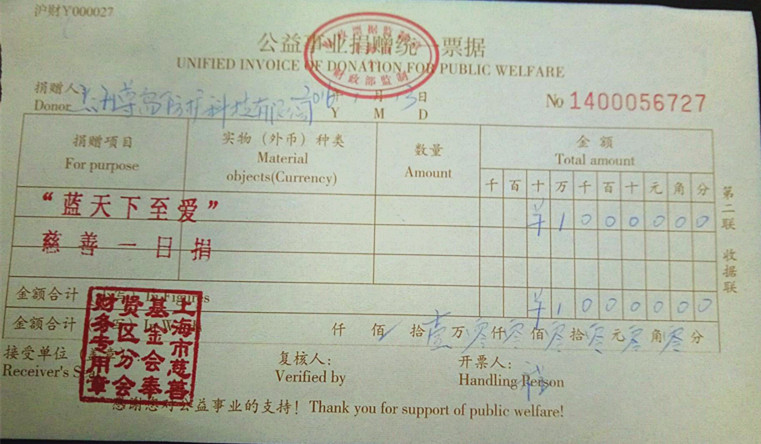 沪财Y000027
公益事业捐赠统一票据
UNIFIED INVOICE OF DONATION FOR PUBLIC WELFARE
财政部监制
捐赠人
Donor
年 月 日
Y M D
No 1400056727
捐赠项目
For purpose
实物（外币）种类
Material
objects(Currency)
数量
Amount
金额
Total amount
千 百 十 万 千 百 十 元 角 分
“蓝天下至爱”
¥ 1 0 0 0 0 0 0
慈善一日捐
第二联 收据联
金额合计 In Figures
¥ 1 0 0 0 0 0 0
金额合计 In
仟 佰 拾 壹 万 零 仟 零 佰 零 拾 零 元 零 角 零 分
接受单位
Receiver's
上海市慈善基金会奉贤区分会财务专用章
复核人：
Verified by
开票人：
Handling Person
感谢您对公益事业的支持！Thank you for support of public welfare!